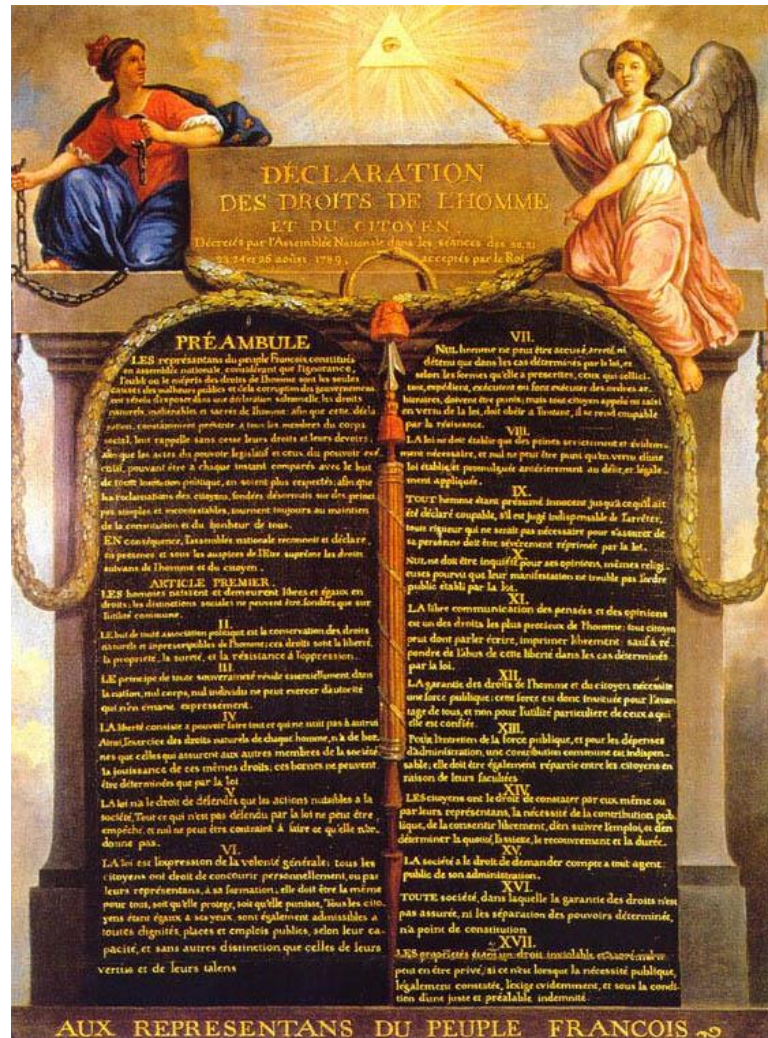 DÉCLARATION
DES DROITS DE L'HOMME
ET DU CITOYEN,
Décretés par l'Assemblée Nationale dans les séances des 20, 21
23, 24 et 26 août 1789, acceptés par le Roi
PRÉAMBULE
LES représentans du peuple François, constitués
en assemblée nationale, considérant que l'ignorance,
l'oubli ou le mépris des droits de l'homme sont les seules
causes des malheurs publics et de la corruption des gouvernemens
ont résolu d'exposer dans une déclaration solemnelle, les droits
naturels, inaliénables et sacrés de l'homme: afin que cette décla
ration, constamment présente a tous les membres du corps
social, leur rappelle sans cesse leurs droits et leurs devoirs;
afin que les actes du pouvoir legislatif et ceux du pouvoir exé-
cutif, pouvant être a chaque instant comparés avec le but
de toute institution politique, en soient plus respectés; afin que
les reclamations des citoyens, fondées désormais sur des princi
pes simples et incontestables, tournent toujours au maintien
de la constitution et du bonheur de tous.
EN conséquence, l'assemblée nationale reconnoit et déclare,
en presence et sous les auspices de l'Etre suprême les droits
suivans de l'homme et du citoyen.
ARTICLE PREMIER.
LES hommes naissent et demeurent libres et égaux en
droits; les distinctions sociales ne peuvent être fondées que sur
l'utilité commune.
II.
LE but de toute association politique est la conservation des droits
naturels et imprescriptibles de l'homme; ces droits sont la liberté,
la propriété, la sureté, et la résistance à l'oppression.
III
LE principe de toute souveraineté réside essentiellement dans
la nation, nul corps, nul individu ne peut exercer d'autorité
qui n'en émane expressément.
IV
LA liberté consiste a pouvoir faire tout ce qui ne nuit pas à autrui
Ainsi, l'exercice des droits naturels de chaque homme, n'a de bor-
nes que celles qui assurent aux autres membres de la société
la jouissance de ces mêmes droits; ces bornes ne peuvent
être déterminées que par la loi
V.
LA loi n'a le droit de défendre que les actions nuisibles a la
société. Tout ce qui n'est pas défendu par la loi ne peut être
empêché, et nul ne peut être contraint à faire ce qu'elle n'or-
donne pas.
VI.
LA loi est l'expression de la volonté générale; tous les
citoyens ont droit de concourir personnellement, ou par
leurs représentans, à sa formation; elle doit être la même
pour tous, soit qu'elle protege, soit qu'elle punisse. Tous les cito-
yens étant égaux à ses yeux, sont également admissibles a
toutes dignités, places et emplois publics, selon leur ca-
pacité, et sans autres distinction que celles de leurs
vertus et de leurs talens
VII.
NUL homme ne peut être accusé, arreté, ni
détenu que dans les cas déterminés par la loi, et
selon les formes qu'elle a prescrites, ceux qui sollici-
tent, expédient, exécutent ou font exécuter des ordres ar-
bitraires, doivent être punis; mais tout citoyen appelé ou saisi
en vertu de la loi, doit obéir a l'instant, il se rend coupable
par la résistance.
VIII.
LA loi ne doit établir que des peines strictement et évidem-
ment nécessaire, et nul ne peut être puni qu'en vertu d'une
loi établie et promulguée antérierement au délit, et légale-
ment appliquée.
IX.
TOUT homme étant présumé innocent jusqu'à ce qu'il ait
été déclaré coupable, s'il est jugé indispensable de l'arrêter,
toute rigueur qui ne serait pas nécessaire pour s'assurer de
sa personne doit être sévèrement réprimée par la loi.
X.
NUL ne doit être inquiété pour ses opinions, mêmes religi-
euses pourvu que leur manifestation ne trouble pas l'ordre
public établi par la loi.
XI.
LA libre communication des pensées et des opinions
est un des droits les plus precieux de l'homme; tout citoyen
peut donc parler écrire, imprimer librement: sauf à ré-
pondre de l'abus de cette liberté dans les cas déterminés
par la loi.
XII.
LA garantie des droits de l'homme et du citoyen nécessite
une force publique; cette force est donc instituée pour l'avan-
tage de tous, et non pour l'utilité particuliere de ceux a qui
elle est confiée.
XIII.
Pour l'entretien de la force publique, et pour les dépenses
d'administration, une contribution commune est indispen-
sable; elle doit être également répartie entre les citoyens en
raison de leurs facultées
XIV.
LES citoyens ont le droit de constater par eux même ou
par leurs représentans, la nécessité de la contribution pub-
lique, de la consentir librement, d'en suivre l'emploi, et d'en
déterminer la quotité, l'assiette, le recouvrement et la durée.
XV.
LA société a le droit de demander compte a tout agent
public de son administration.
XVI.
TOUTE société, dans laquelle la garantie des droits n'est
pas assurée, ni les séparation des pouvoirs déterminée,
n'a point de constitution
XVII.
LES propriétés étant un droit inviolable et sacré, nul ne
peut en être privé, si ce n'est lorsque la nécessité publique,
légalement constatée, l'exige evidemment, et sous la condi-
tion d'une juste et préalable indemnité.
AUX REPRESENTANS DU PEUPLE FRANCOIS